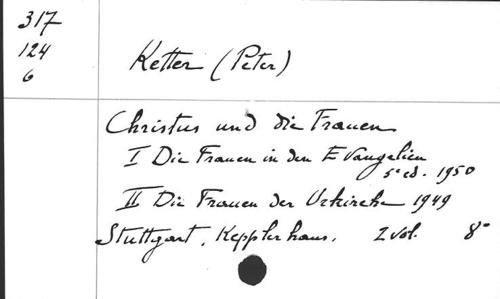 317
124
6
Ketter (Peter)
Christus und die Frauen
I Die Frauen in den Evangelien
5e ed. 1950
II Die Frauen der Urkirche 1949
Stuttgart, Kepplerhaus. 2 vol. 8°